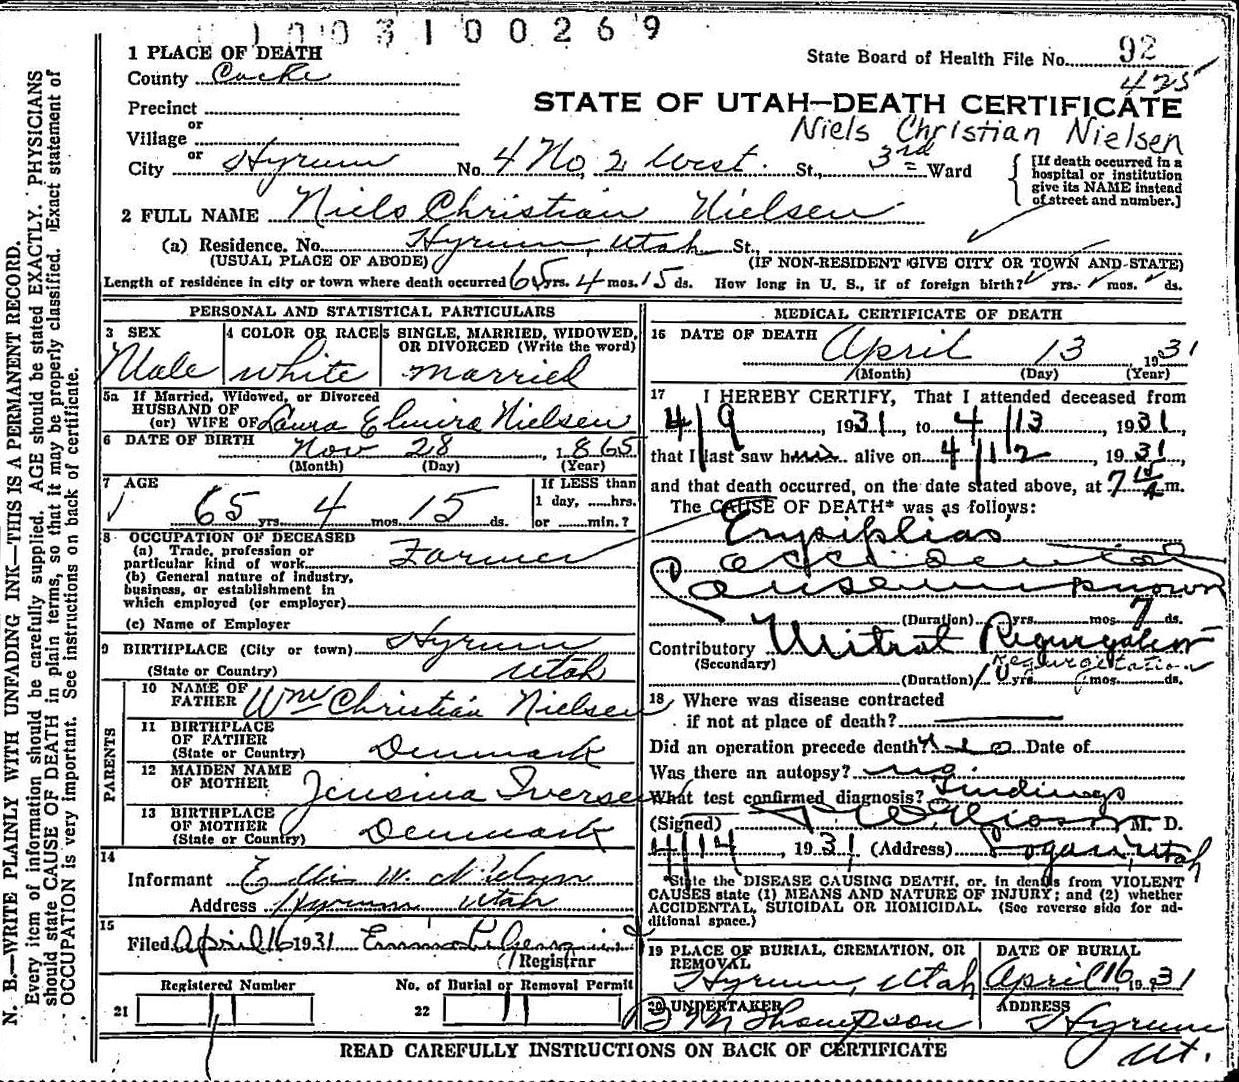 1003100269
1 PLACE OF DEATH
State Board of Health File No. 92
County Cache
425
STATE OF UTAH—DEATH CERTIFICATE
Precinct
or
Village
Niels Christian Nielsen
or
City Hyrum No. 4 No, 2 West. St., 3rd Ward
[If death occurred in a
hospital or institution
give its NAME instead
of street and number.]
2 FULL NAME Niels Christian Nielsen
(a) Residence. No. Hyrum, Utah St.,
(USUAL PLACE OF ABODE) (IF NON-RESIDENT GIVE CITY OR TOWN AND STATE)
Length of residence in city or town where death occurred 65 yrs. 4 mos. 15 ds. How long in U. S., if of foreign birth? yrs. mos. ds.
PERSONAL AND STATISTICAL PARTICULARS
3 SEX
Male
4 COLOR OR RACE
white
5 SINGLE, MARRIED, WIDOWED,
OR DIVORCED (Write the word)
married
5a If Married, Widowed, or Divorced
HUSBAND OF
(or) WIFE OF Laura Elmira Nielsen
6 DATE OF BIRTH Nov 28, 1865
(Month) (Day) (Year)
7 AGE
65 yrs. 4 mos. 15 ds.
If LESS than
1 day, ......hrs.
or ......min.?
8 OCCUPATION OF DECEASED
(a) Trade, profession or
particular kind of work Farmer
(b) General nature of industry,
business, or establishment in
which employed (or employer)
(c) Name of Employer
9 BIRTHPLACE (City or town) Hyrum
(State or Country) Utah
PARENTS
10 NAME OF
FATHER Wm Christian Nielsen
11 BIRTHPLACE
OF FATHER
(State or Country) Denmark
12 MAIDEN NAME
OF MOTHER Jensina Iversen
13 BIRTHPLACE
OF MOTHER
(State or Country) Denmark
14
Informant Ellis W. Nielsen
Address Hyrum Utah
15
Filed April 16 1931
Registrar
Registered Number
21
No. of Burial or Removal Permit
22
MEDICAL CERTIFICATE OF DEATH
16 DATE OF DEATH April 13 1931
(Month) (Day) (Year)
17 I HEREBY CERTIFY, That I attended deceased from
4/9, 1931, to 4/13, 1931,
that I last saw him alive on 4/12, 1931,
and that death occurred, on the date stated above, at 7 15 A m.
The CAUSE OF DEATH* was as follows:
Erysiplias
accidental
Cause unknown
(Duration) yrs. mos. 7 ds.
Contributory Mitral Regurgation
(Secondary) Regurgitation
(Duration) 10 yrs. mos. ds.
18 Where was disease contracted
if not at place of death?
Did an operation precede death? no Date of
Was there an autopsy? no.
What test confirmed diagnosis? Findings
(Signed) M. D.
4/14, 1931 (Address) Logan, Utah
State the DISEASE CAUSING DEATH, or, in deaths from VIOLENT
CAUSES state (1) MEANS AND NATURE OF INJURY; and (2) whether
ACCIDENTAL, SUICIDAL OR HOMICIDAL. (See reverse side for ad-
ditional space.)
19 PLACE OF BURIAL, CREMATION, OR
REMOVAL
Hyrum, Utah
DATE OF BURIAL
April 16, 1931
20 UNDERTAKER
Thompson
ADDRESS
Hyrum
Ut.
READ CAREFULLY INSTRUCTIONS ON BACK OF CERTIFICATE
N. B.—WRITE PLAINLY WITH UNFADING INK—THIS IS A PERMANENT RECORD.
Every item of information should be carefully supplied. AGE should be stated EXACTLY. PHYSICIANS
should state CAUSE OF DEATH in plain terms, so that it may be properly classified. Exact statement of
OCCUPATION is very important. See instructions on back of certificate.